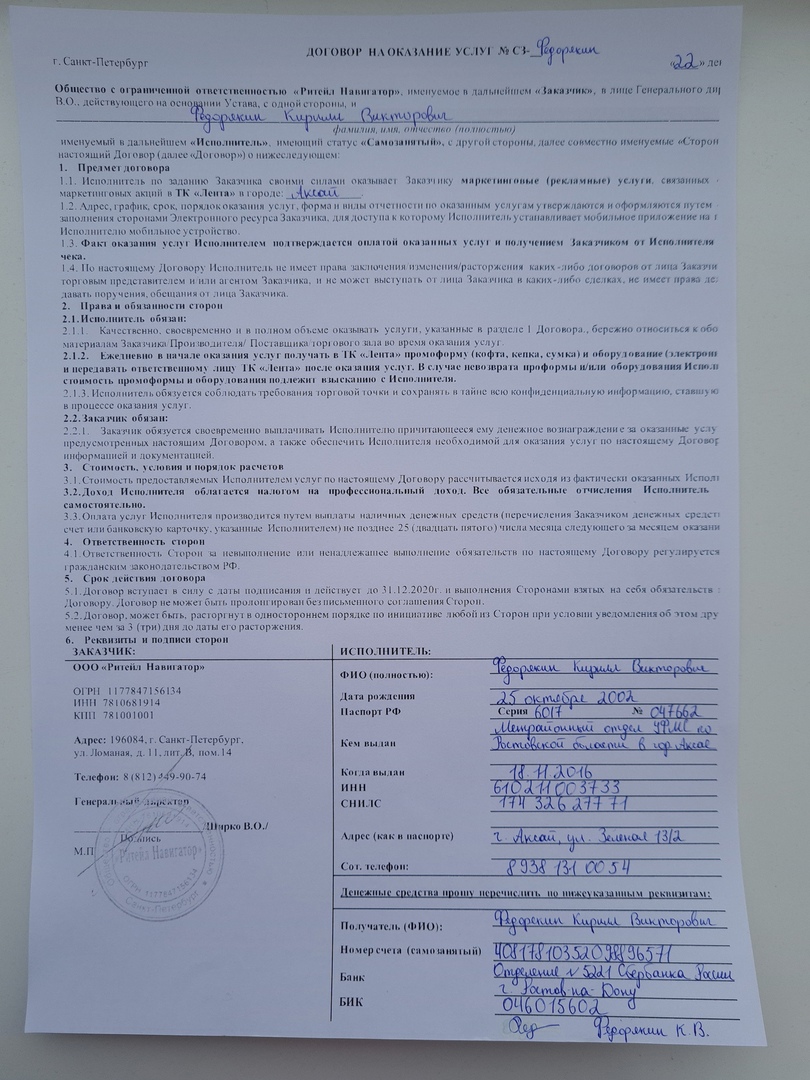 ДОГОВОР НА ОКАЗАНИЕ УСЛУГ № СЗ- Федорякин
г. Санкт-Петербург «22» дек
Общество с ограниченной ответственностью «Ритейл Навигатор», именуемое в дальнейшем «Заказчик», в лице Генерального дир
В.О., действующего на основании Устава, с одной стороны, и
Федорякин Кирилл Викторович
фамилия, имя, отчество (полностью)
именуемый в дальнейшем «Исполнитель», имеющий статус «Самозанятый», с другой стороны, далее совместно именуемые «Сторон
настоящий Договор (далее «Договор») о нижеследующем:
1. Предмет договора
1.1. Исполнитель по заданию Заказчика своими силами оказывает Заказчику маркетинговые (рекламные) услуги, связанных
маркетинговых акций в ТК «Лента» в городе: Аксай
1.2. Адрес, график, срок, порядок оказания услуг, форма и виды отчетности по оказанным услугам утверждаются и оформляются путем
заполнения сторонами Электронного ресурса Заказчика, для доступа к которому Исполнитель устанавливает мобильное приложение на
Исполнителю мобильное устройство.
1.3. Факт оказания услуг Исполнителем подтверждается оплатой оказанных услуг и получением Заказчиком от Исполнителя
чека.
1.4. По настоящему Договору Исполнитель не имеет права заключения изменения/расторжения каких-либо договоров от лица Заказчи
торговым представителем и или агентом Заказчика, и не может выступать от лица Заказчика в каких-либо сделках, не имеет права де
давать поручения, обещания от лица Заказчика.
2. Права и обязанности сторон
2.1. Исполнитель обязан:
2.1.1. Качественно, своевременно и в полном объеме оказывать услуги, указанные в разделе 1 Договора., бережно относиться к обо
материалам Заказчика/Производителя/ Поставщика/торгового зала во время оказания услуг.
2.1.2. Ежедневно в начале оказания услуг получать в ТК «Лента» промоформу (кофта, кепка, сумка) и оборудование (электрон
и передавать ответственному лицу ТК «Лента» после оказания услуг. В случае невозврата проформы и/или оборудования Испол
стоимость промоформы и оборудования подлежит взысканию с Исполнителя.
2.1.3. Исполнитель обязуется соблюдать требования торговой точки и сохранять в тайне всю конфиденциальную информацию, ставшую
в процессе оказания услуг.
2.2. Заказчик обязан:
2.2.1. Заказчик обязуется своевременно выплачивать Исполнителю причитающееся ему денежное вознаграждение за оказанные услу
предусмотренных настоящим Договором, а также обеспечить Исполнителя необходимой для оказания услуг по настоящему Договор
информацией и документацией.
3. Стоимость, условия и порядок расчетов
3.1. Стоимость предоставляемых Исполнителем услуг по настоящему Договору рассчитывается исходя из фактически оказанных Испол
3.2. Доход Исполнителя облагается налогом на профессиональный доход. Все обязательные отчисления Исполнитель
самостоятельно.
3.3. Оплата услуг Исполнителя производится путем выплаты наличных денежных средств (перечисления Заказчиком денежных средст
счет или банковскую карточку, указанные Исполнителем) не позднее 25 (двадцать пятого) числа месяца следующего за месяцем оказани
4. Ответственность сторон
4.1. Ответственность Сторон за невыполнение или ненадлежащее выполнение обязательств по настоящему Договору регулируется
гражданским законодательством РФ.
5. Срок действия договора
5.1. Договор вступает в силу с даты подписания и действует до 31.12.2020г. и выполнения Сторонами взятых на себя обязательств
Договору. Договор не может быть пролонгирован без письменного соглашения Сторон.
5.2. Договор, может быть, расторгнут в одностороннем порядке по инициативе любой из Сторон при условии уведомления об этом дру
менее чем за 3 (три) дня до даты его расторжения.
6. Реквизиты и подписи сторон
ЗАКАЗЧИК:
ООО «Ритейл Навигатор»
ОГРН 1177847156134
ИНН 7810681914
КПП 781001001
Адрес: 196084, г. Санкт-Петербург,
ул. Ломаная, д. 11, лит. В, пом.14
Телефон: 8 (812) 449-90-74
Генеральный директор
/Ширко В.О./
Подпись
М.П
«Ритейл Навигатор»
ОГРН 1177847156134
Санкт-Петербург
ИСПОЛНИТЕЛЬ:
ФИО (полностью): Федорякин Кирилл Викторович
Дата рождения 25 октября 2002
Паспорт РФ Серия 6017 № 047662
Кем выдан Межрайонный отдел УФМС по
Ростовской области в гор. Аксае
Когда выдан 18.11.2016
ИНН 610211003733
СНИЛС 174 326 277 71
Адрес (как в паспорте) г. Аксай, ул. Зеленая 13/2
Сот. телефон: 8938 131 00 54
Денежные средства прошу перечислить по нижеуказанным реквизитам:
Получатель (ФИО): Федорякин Кирилл Викторович
Номер счета (самозанятый) 40817810352098896571
Банк Отделение N 5221 Сбербанка России
г. Ростов-на-Дону
БИК 046015602
Фед Федорякин К.В.